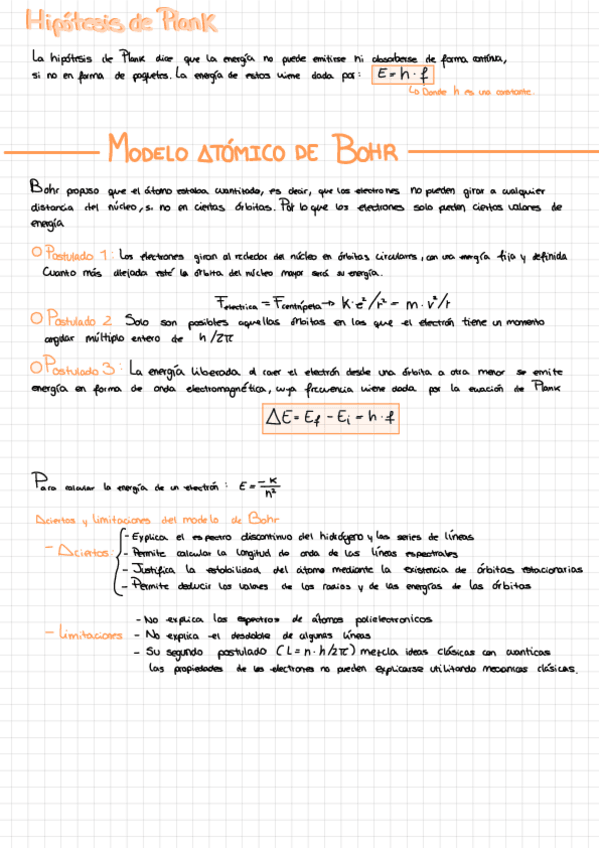 Hipótesis de Plank
La hipótesis de Plank dice que la energía no puede emitirse ni absorberse de forma continua,
si no en forma de paquetes. La energía de estos viene dada por: E = h · f
↳ Donde h es una constante.
MODELO ATÓMICO DE BOHR
Bohr propuso que el átomo estaba cuantizado, es decir, que los electrones no pueden girar a cualquier
distancia del núcleo, si no en ciertas órbitas. Por lo que los electrones solo pueden ciertos valores de
energía
O Postulado 1: Los electrones giran al rededor del núcleo en órbitas circulares, con una energía fija y definida
Cuanto más alejada esté la órbita del núcleo mayor será su energía.
Felectrica = Fcentrípeta → K·e²/r² = m·v²/r
O Postulado 2 Solo son posibles aquellas órbitas en las que el electrón tiene un momento
angular múltiplo entero de h/2π
O Postulado 3: La energía liberada al caer el electrón desde una órbita a otra menor se emite
energía en forma de onda electromagnética, cuya frecuencia viene dada por la ecuación de Plank
ΔE = Ef - Ei = h · f
Para calcular la energía de un electrón: E = -K/n²
Aciertos y limitaciones del modelo de Bohr
- Aciertos:
- Explica el espectro discontinuo del hidrógeno y las series de líneas
- Permite calcular la longitud de onda de las líneas espectrales
- Justifica la estabilidad del átomo mediante la existencia de órbitas estacionarias
- Permite deducir los valores de los radios y de las energías de las órbitas
- Limitaciones
- No explica los espectros de átomos polielectronicos
- No explica el desdoble de algunas líneas
- Su segundo postulado (L = n·h/2π) mezcla ideas clásicas con cuanticas
las propiedades de los electrones no pueden explicarse utilitando mecanicas clásicas.